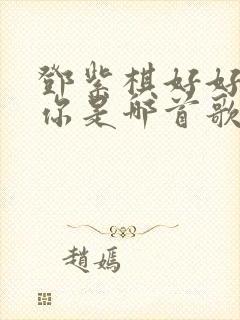 鄧紫棋好好
你是哪首歌
趙嫣